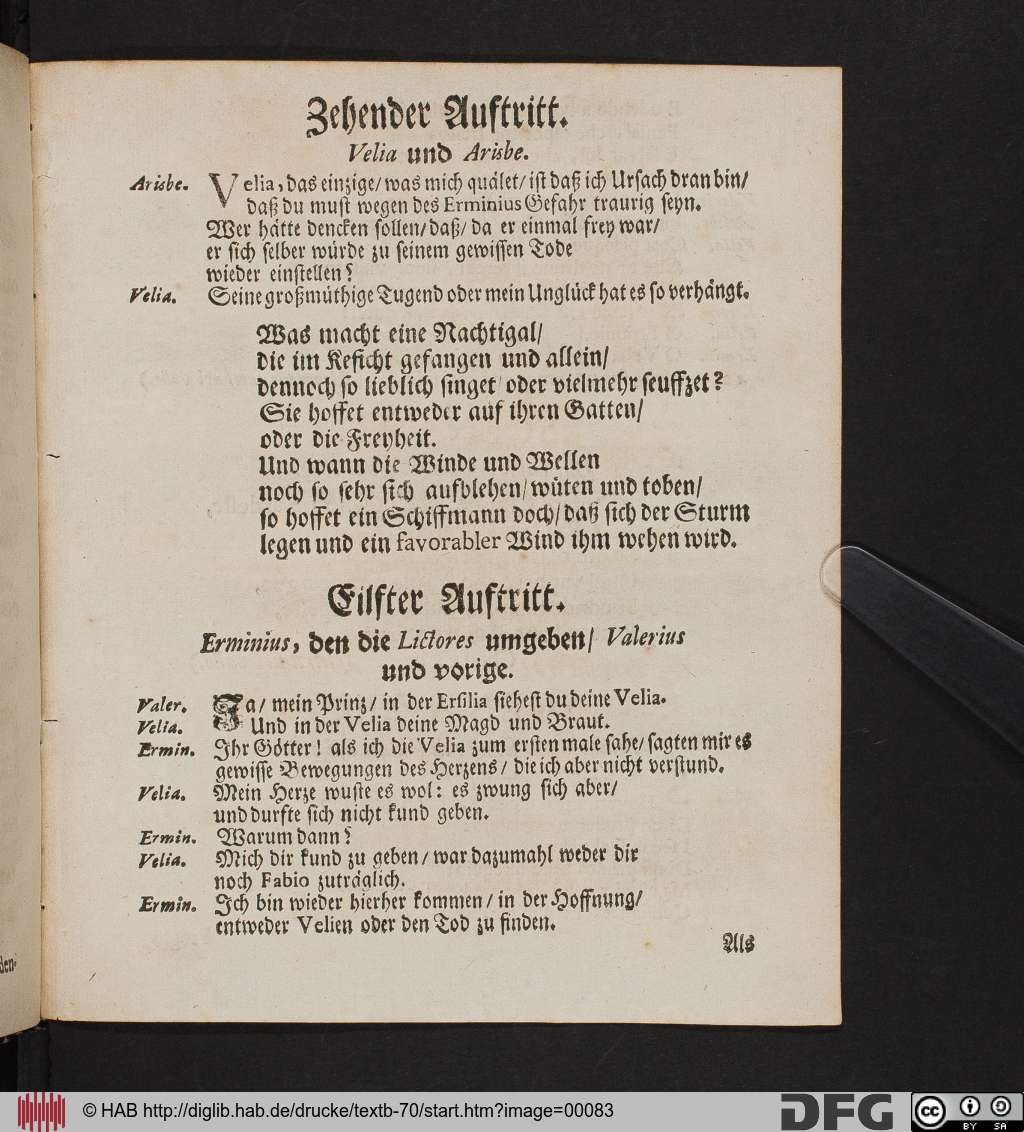 Zehender Auftritt.
Velia und Arisbe.
Arisbe. Velia, das einzige/ was mich quälet/ ist daß ich Ursach dran bin/
daß du must wegen des Erminius Gefahr traurig seyn.
Wer hätte dencken sollen/ daß/ da er einmal frey war/
er sich selber würde zu seinem gewissen Tode
wieder einstellen?
Velia. Seine großmüthige Tugend oder mein Unglück hat es so verhängt.
Was macht eine Nachtigal/
die im Keficht gefangen und allein/
dennoch so lieblich singet/ oder vielmehr seuffzet?
Sie hoffet entweder auf ihren Gatten/
oder die Freyheit.
Und wann die Winde und Wellen
noch so sehr sich aufblehen/ wüten und toben/
so hoffet ein Schiffmann doch/ daß sich der Sturm
legen und ein favorabler Wind ihm wehen wird.
Eilfter Auftritt.
Erminius, den die Lictores umgeben/ Valerius
und vorige.
Valer. Ja/ mein Prinz/ in der Ersilia siehest du deine Velia.
Velia. Und in der Velia deine Magd und Braut.
Ermin. Ihr Götter! als ich die Velia zum ersten male sahe/ sagten mir es
gewisse Bewegungen des Herzens/ die ich aber nicht verstund.
Velia. Mein Herze wuste es wol: es zwung sich aber/
und durfte sich nicht kund geben.
Ermin. Warum dann?
Velia. Mich dir kund zu geben/ war dazumahl weder dir
noch Fabio zuträglich.
Ermin. Ich bin wieder hierher kommen/ in der Hoffnung/
entweder Velien oder den Tod zu finden.
Als
den-
© HAB http://diglib.hab.de/drucke/textb-70/start.htm?image=00083
DFG
cc BY SA